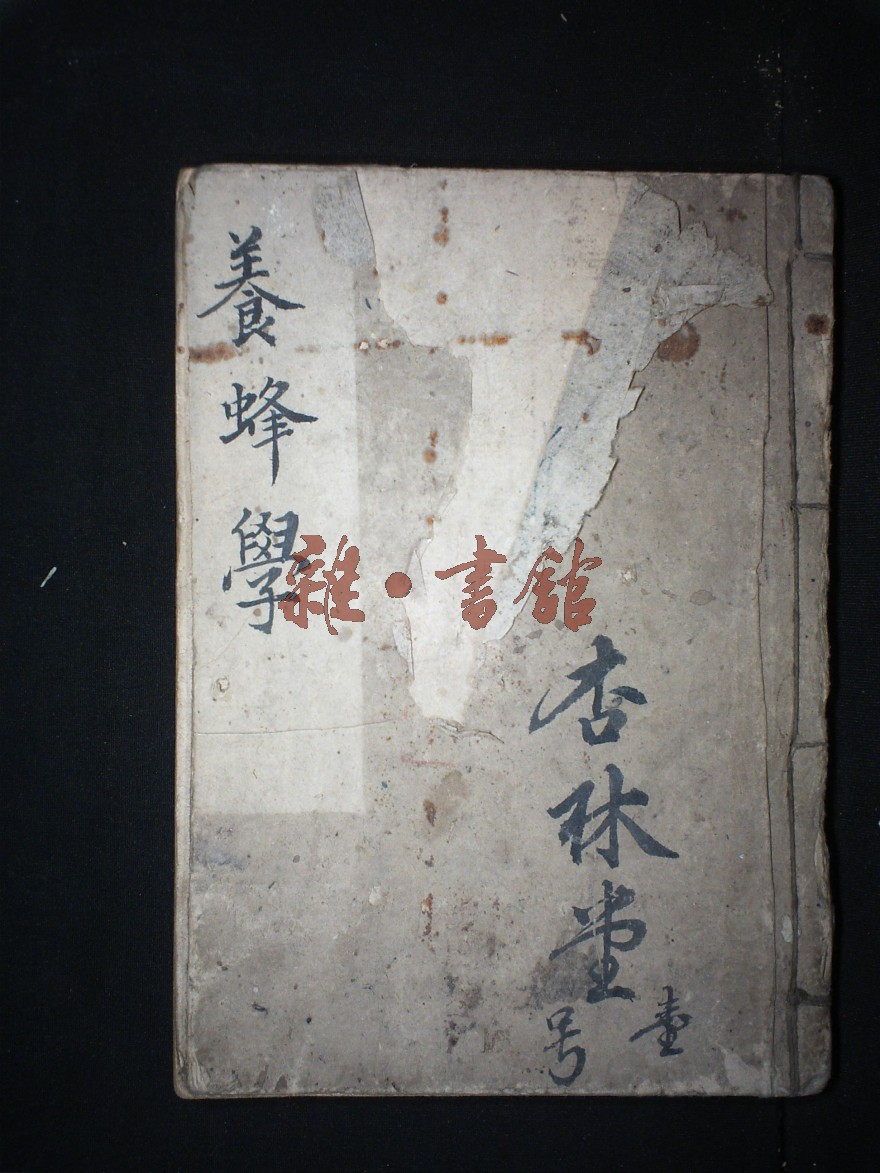 養蜂學
雜·書館
杏林堂
壹号